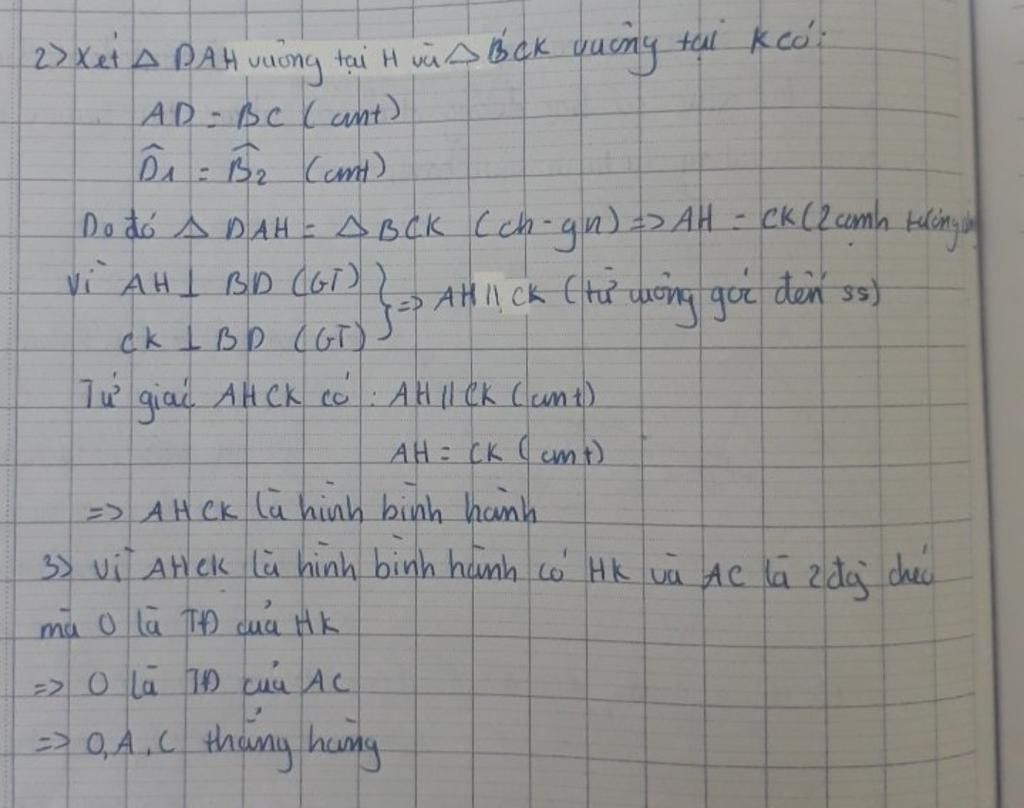 2> Xét △ DAH vuông tại H và △ BCK vuông tại K có:
AD = BC (cmt)
D̂1 = B̂2 (cmt)
Do đó △ DAH = △ BCK (ch-gn) => AH = CK (2 cạnh tương ứng
Vì AH ⊥ BD (GT) } => AH // CK (từ vuông góc đến ss)
CK ⊥ BD (GT)
Tứ giác AHCK có: AH // CK (cmt)
AH = CK (cmt)
=> AHCK là hình bình hành
3> Vì AHCK là hình bình hành có HK và AC là 2 đg chéo
mà O là TĐ của HK
=> O là TĐ của AC
=> O, A, C thẳng hàng